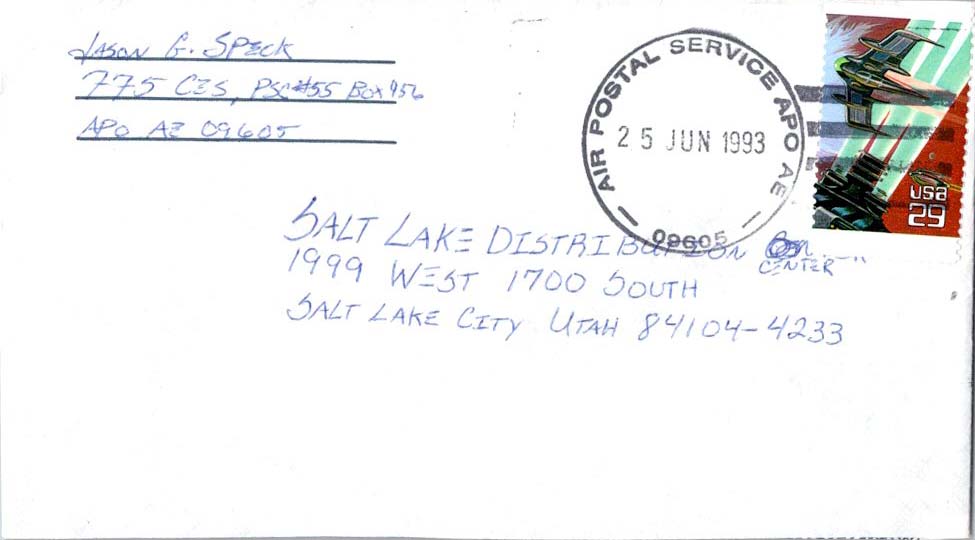 JASON G. SPECK
775 CES, PSC#55 BOX 956
APO AE 09605
AIR POSTAL SERVICE APO AE
25 JUN 1993
09605
USA
29
SALT LAKE DISTRIBUTION
CENTER
1999 WEST 1700 SOUTH
SALT LAKE CITY UTAH 84104-4233